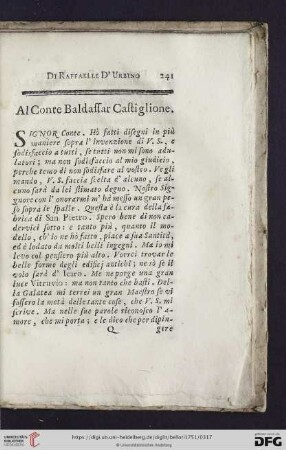 DI RAFFAELLE D'URBINO 241
Al Conte Baldassar Castiglione.
SIGNOR Conte. Hò fatti disegni in più
maniere sopra l'Invenzione di V. S., e
sodisfaccio a tutti, se tutti non mi sono adu-
latori; ma non sodisfaccio al mio giudicio,
perche temo di non sodisfare al vostro. Ve gli
mando, V. S. faccia scelta d'alcuno, se al-
cuno sarà da lei stimato degno. Nostro Si-
gnore con l'onorarmi m'hà messo un gran pe-
so sopra le spalle. Questa è la cura della fa-
brica di San Pietro. Spero bene di non ca-
dervici sotto; e tanto più, quanto il mo-
dello, ch'io ne hò fatto, piace a sua Santità,
ed è lodato da molti belli ingegni. Ma io mi
levo col pensiero più alto. Vorrei trovar le
belle forme degli edificj antichi; ne sò se il
volo sarà d'Icaro. Me ne porge una gran
luce Vitruvio: ma non tanto che basti. Del-
la Galatea mi terrei un gran Maestro se vi
fossero la metà delle tante cose, che V. S. mi
scrive. Ma nelle sue parole riconosco l'a-
more, che mi porta; e le dico che per dipin-
Q gere
https://digi.ub.uni-heidelberg.de/diglit/bellori1751/0317
© Universitätsbibliothek Heidelberg
gefördert durch die
DFG